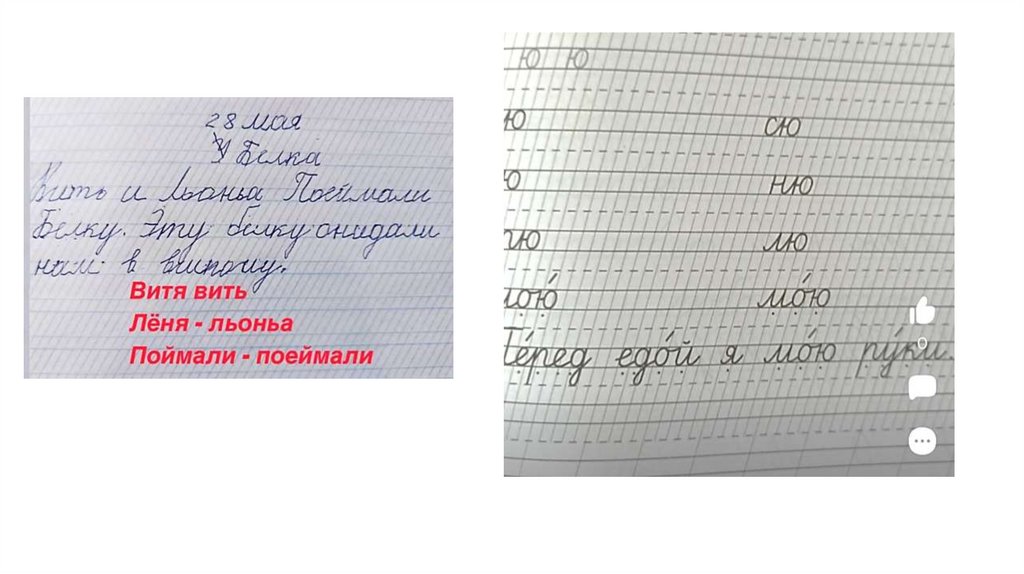 28 мая
Белка
Вить и Льоньа Поеймали
Белку. Эту белку
нам в
Витя вить
Лёня - льоньа
Поймали - поеймали
ю ю
ю сю
ю ню
ю лю
мо́ю́ мо́ю
Пе́ред едо́й я мо́ю ру́ки.
0